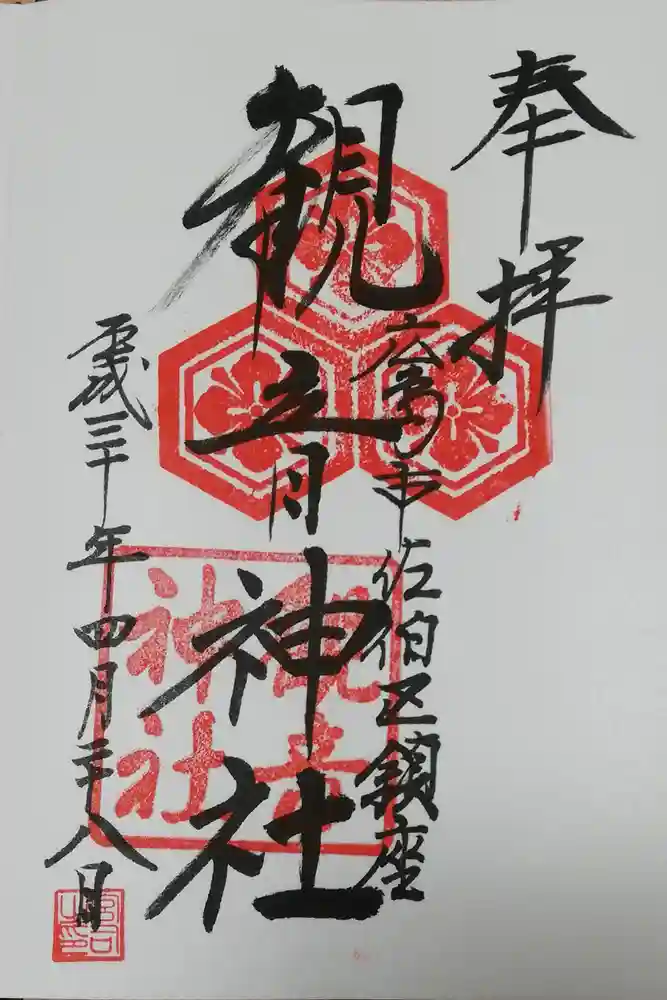 奉拝
広島市佐伯区鎮座
観音神社
平成三十年四月二十八日
観音
神社